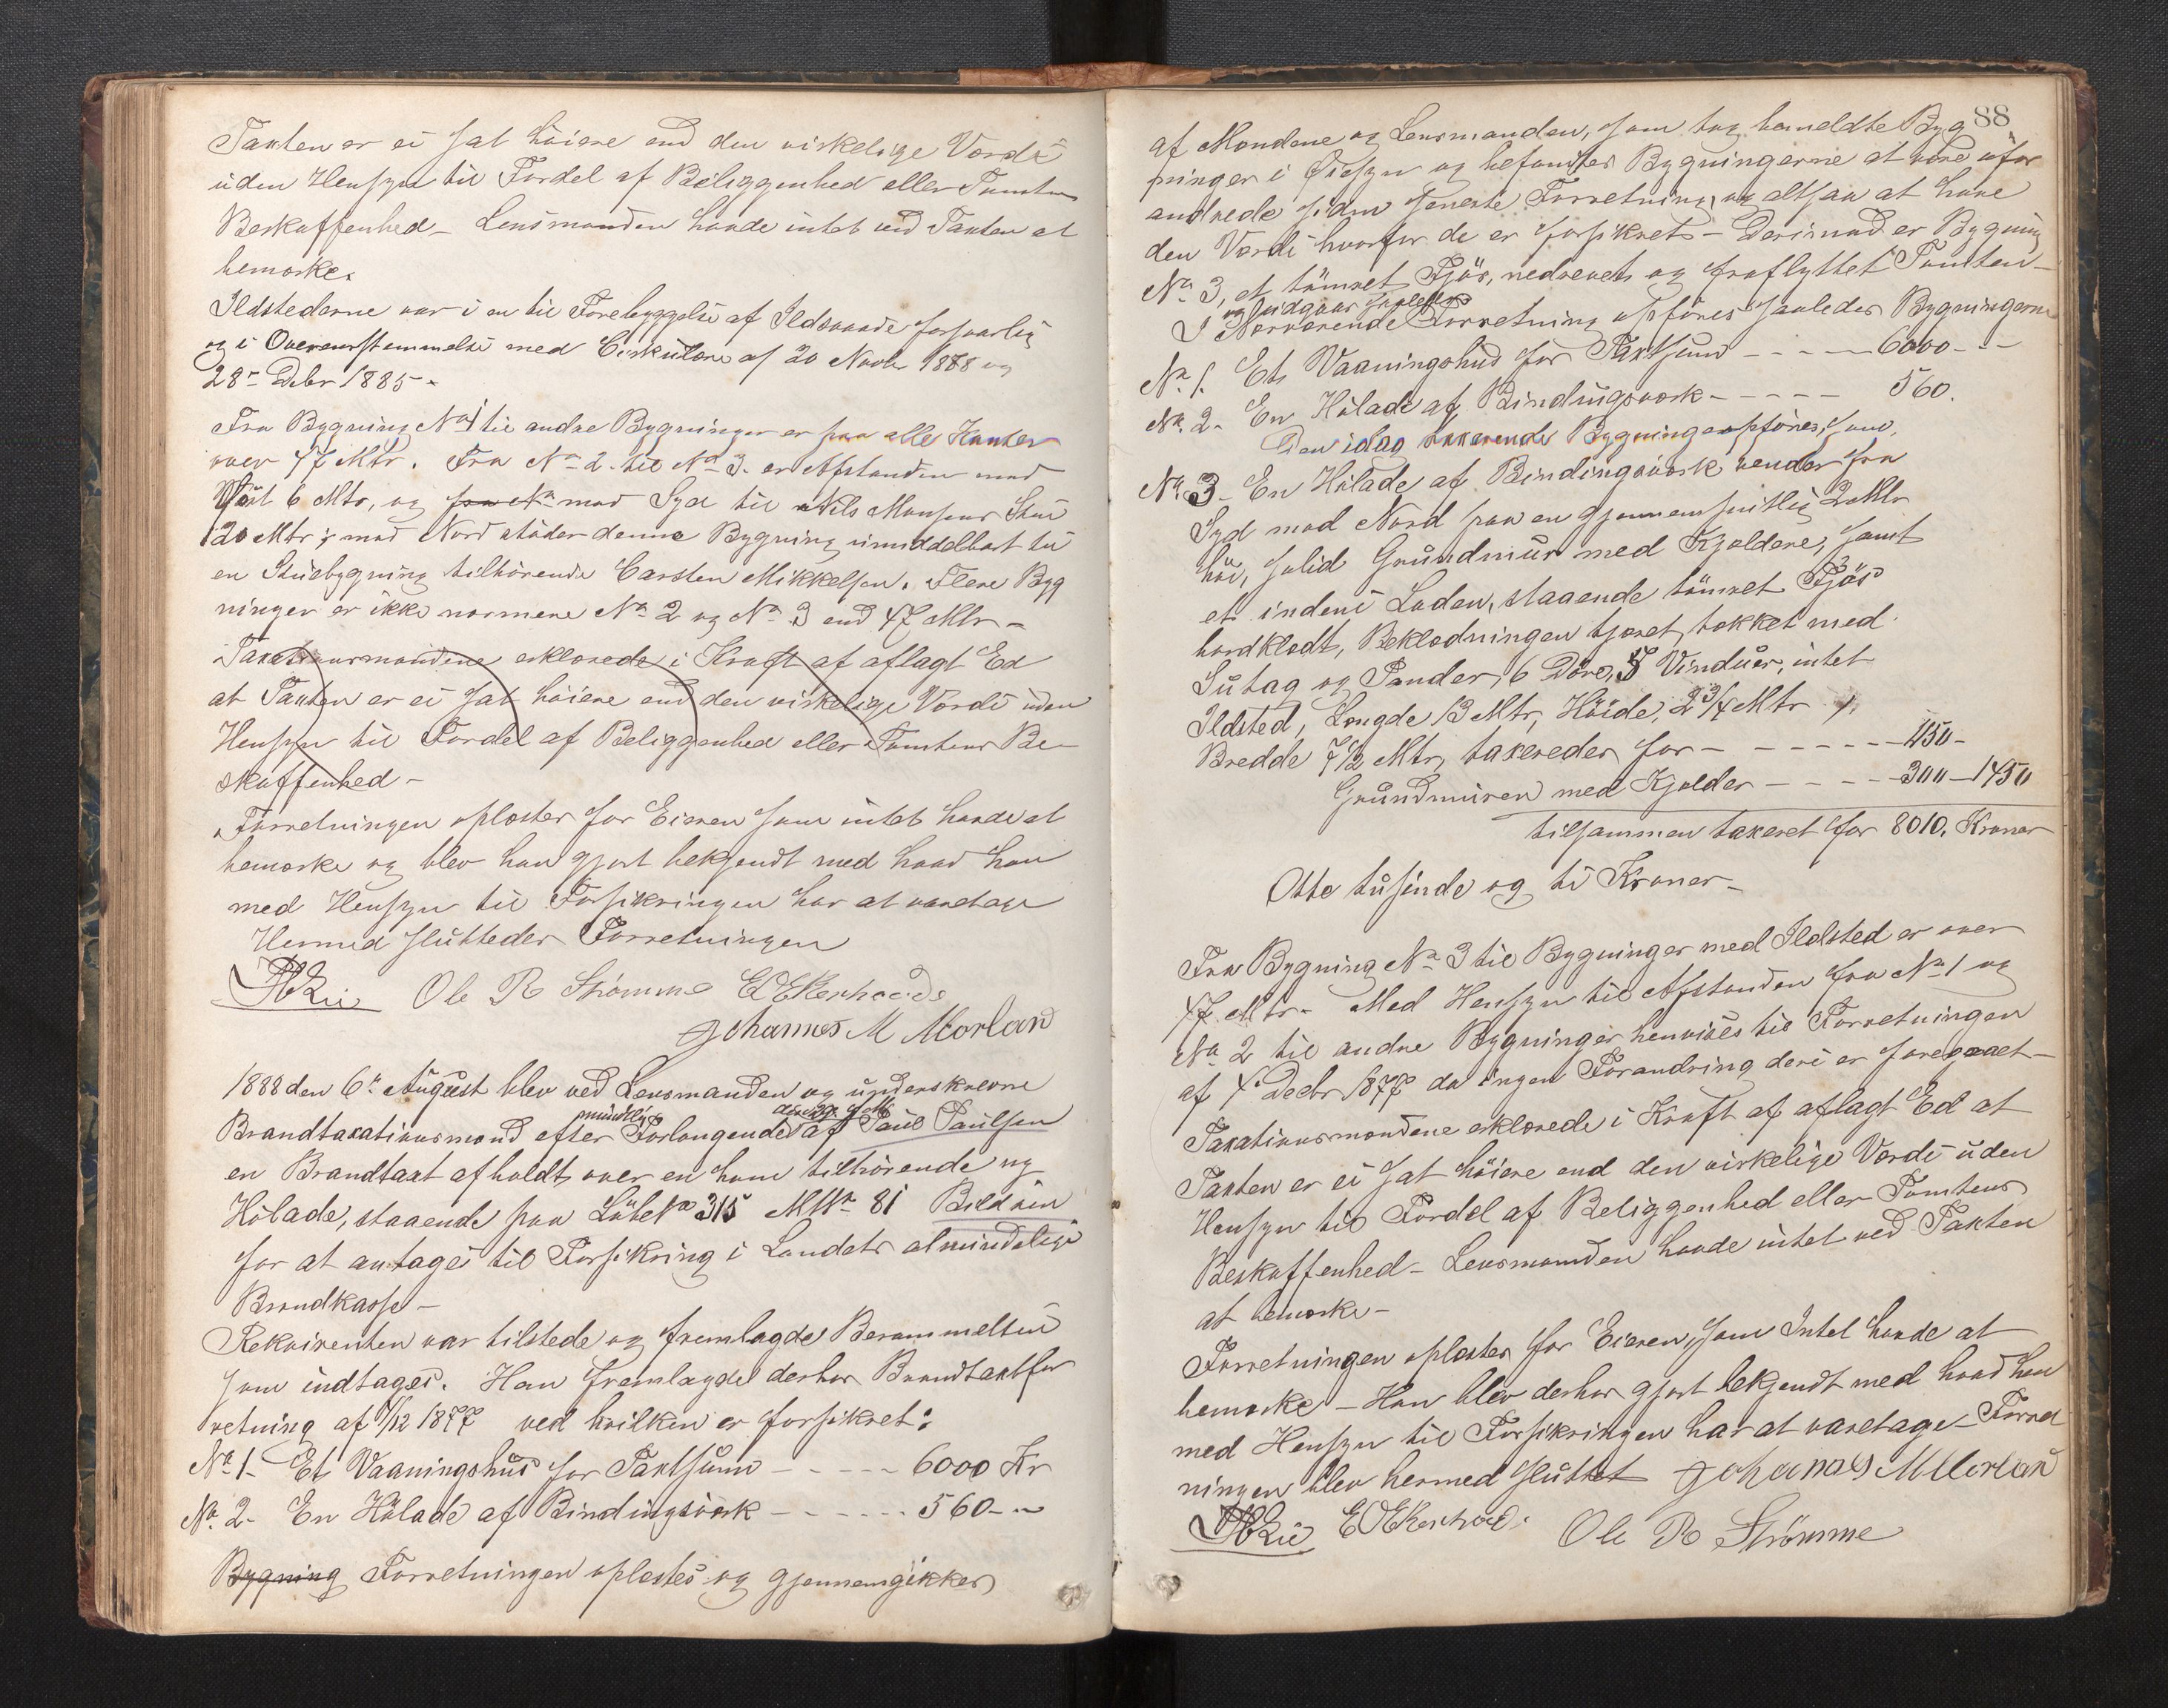 Taxten er ei sat høiere end den virkelige Værdi
uden Hensyn til Fordel af Beliggenhed eller Tomtens
Beskaffenhed – Lensmanden havde intet ved Taxten at
bemærke.
Ildstederne var i en til Forebyggelse af Ildsvaade forsvarlig
og i Overensstemmelse med Cirkulære af 20 Novbr 1888 og
28de Debr 1885 –
Fra Bygning No 1 til andre Bygninger er paa alle Kanter
over 47 Mtr. Fra No 2 til No 3 er Afstanden mod
Vest 6 Mtr, og fra No mod Syd til Nils Monsens Stue
20 Mtr; mod Nord støder denne Bygning umiddelbart til
en Stuebygning tilhørende Carsten Mikkelsen. Flere Byg
ninger er ikke nærmere No 2 og No 3 end 47 Mtr –
Taxationsmændene erklærede i Kraft af aflagt Ed
at Taxten er ei sat høiere end den virkelige Værdi uden
Hensyn til Fordel af Beliggenhed eller Tomtens Be-
skaffenhed –
Forretningen oplæstes for Eieren som intet havde at
bemærke og blev han gjort bekjendt med hvad han
med Hensyn til Forsikringen har at varetage
Hermed sluttedes Forretningen
Ole R Strømme
Johannes M Morlan
1888 den 6te August blev ved Lensmanden og underskrevne
mundtlig
Brandtaxationsmænd efter Forlangende af Paul Paulsen
en Brandtaxt afholdt over en ham tilhørende ny
Hølade, staaende paa Løbe No 315 M No 81 Bildøen
for at antages til Forsikring i Landets almindelige
Brandkasse –
Rekvirenten var tilstede og fremlagde Berammelsen
som indtages. Han fremlagde derhos Brandtaxtfor
retning af 4/12 1877 ved hvilken er forsikret:
No 1 – Et Vaaningshus for Taxtsum – – – – 6000 Kr
No 2 – En Hølade af Bindingsværk – – – – – 560 – "
Bygning Forretningen oplæstes og gjennemgikkes
88
af Mændene og Lensmanden, som tog bemeldte Byg
ninger i Øiesyn og befandtes Bygningerne at være ufor
andrede siden seneste Forretning, og altsaa at have
den Værdi hvorfor de er forsikret – Derimod er Bygning
No 3, et tømret Fjøs, nedrevet og fraflyttet Tomten –
I Nærværende Forretning opføres saaledes Bygningerne
No 1. Et Vaaningshus for Taxtsum – – – – 6000 – –
No 2 – En Hølade af Bindingsværk – – – – – 560.
Den idag taxerende Bygning opføres som
No 3 – En Hølade af Bindingsværk vender fra
Syd mod Nord paa en gjennemsnitlig 2 Mtr
høi, solid Grundmur med Kjeldere, samt
et indeni Laden, staaende tømret Fjøs
bordklædt, Beklædningen tjæret, tækket med
Sutag og Pander, 6 Døre, 5 Vinduer, intet
Ildsted, Længde 13 Mtr, Høide, 2 3/4 Mtr
Bredde 7 1/2 Mtr, taxeredes for – – – – – – 1150 –
Grundmuren med Kjelder – – – – 300 – 1450
tilsammen taxeret for 8010. Kroner
Otte tusinde og ti Kroner –
Fra Bygning No 3 til Bygninger med Ildsted er over
47 Mtr – Med Hensyn til Afstanden fra No 1 og
No 2 til andre Bygninger henvises til Forretningen
af 4 Decbr 1877 da ingen Forandring deri er foregaaet –
Taxationsmændene erklærede i Kraft af aflagt Ed at
Taxten er ei sat høiere end den virkelige Værdi uden
Hensyn til Fordel af Beliggenhed eller Tomtens
Beskaffenhed – Lensmanden havde intet ved Taxten
at bemærke –
Forretningen oplæstes for Eieren, som Intet havde at
bemærke – Han blev derhos gjort bekjendt med hvad han
med Hensyn til Forsikringen har at varetage – Forret
ningen blev hermed sluttet Johannes M Morlan
Ole R Strømme